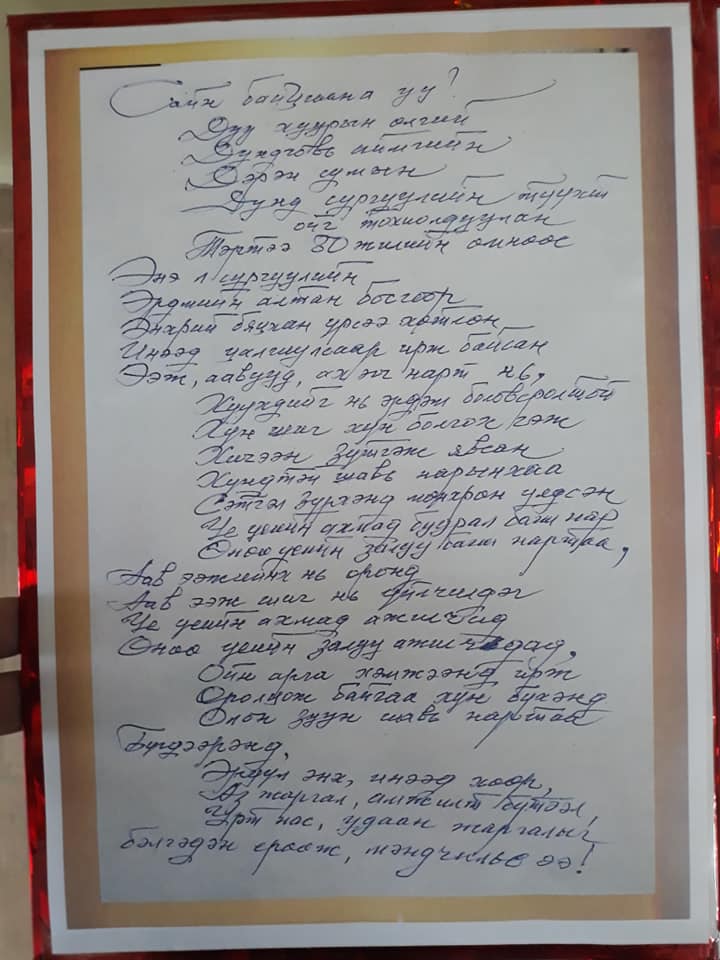 Сайн байцгаана уу!
Дуу хуурын өлгий
Дундговь аймгийн
Дэрэн сумын
Дунд сургуулийн түүхт
ойг тохиолдуулан
Тэртээ 80 жилийн өмнөөс
Энэ л сургуулийн
Эрдмийн алтан босгоор
Энхрий бяцхан үрсээ хөтлөн
Инээд цалгиулсаар ирж байсан
Ээж, аавууд, ах эгч нарт нь,
Хүүхдийг нь эрдэм боловсролтой
Хүн шиг хүн болгох гэж
Хичээн зүтгэж явсан
Хүндтэй шавь нарынхаа
Сэтгэл зүрхэнд мөнхрөн үлдсэн
Үе үеийн ахмад буурал багш нар
Өнөө үеийн залуу багш нартаа,
Аав ээжийнх нь оронд
Аав ээж шиг нь үйлчилдэг
Үе үеийн ахмад ажилчид
Өнөө үеийн залуу ажилчдад,
Ойн арга хэмжээнд ирж
Оролцож байгаа хүн бүхэнд
Олон зуун шавь нартаа
Бүгдээрэнд,
Эрүүл энх, инээд хөөр,
Аз жаргал, амжилт бүтээл,
Урт нас, удаан жаргалыг
бэлгэдэн ерөөж, мэндчилье ээ!